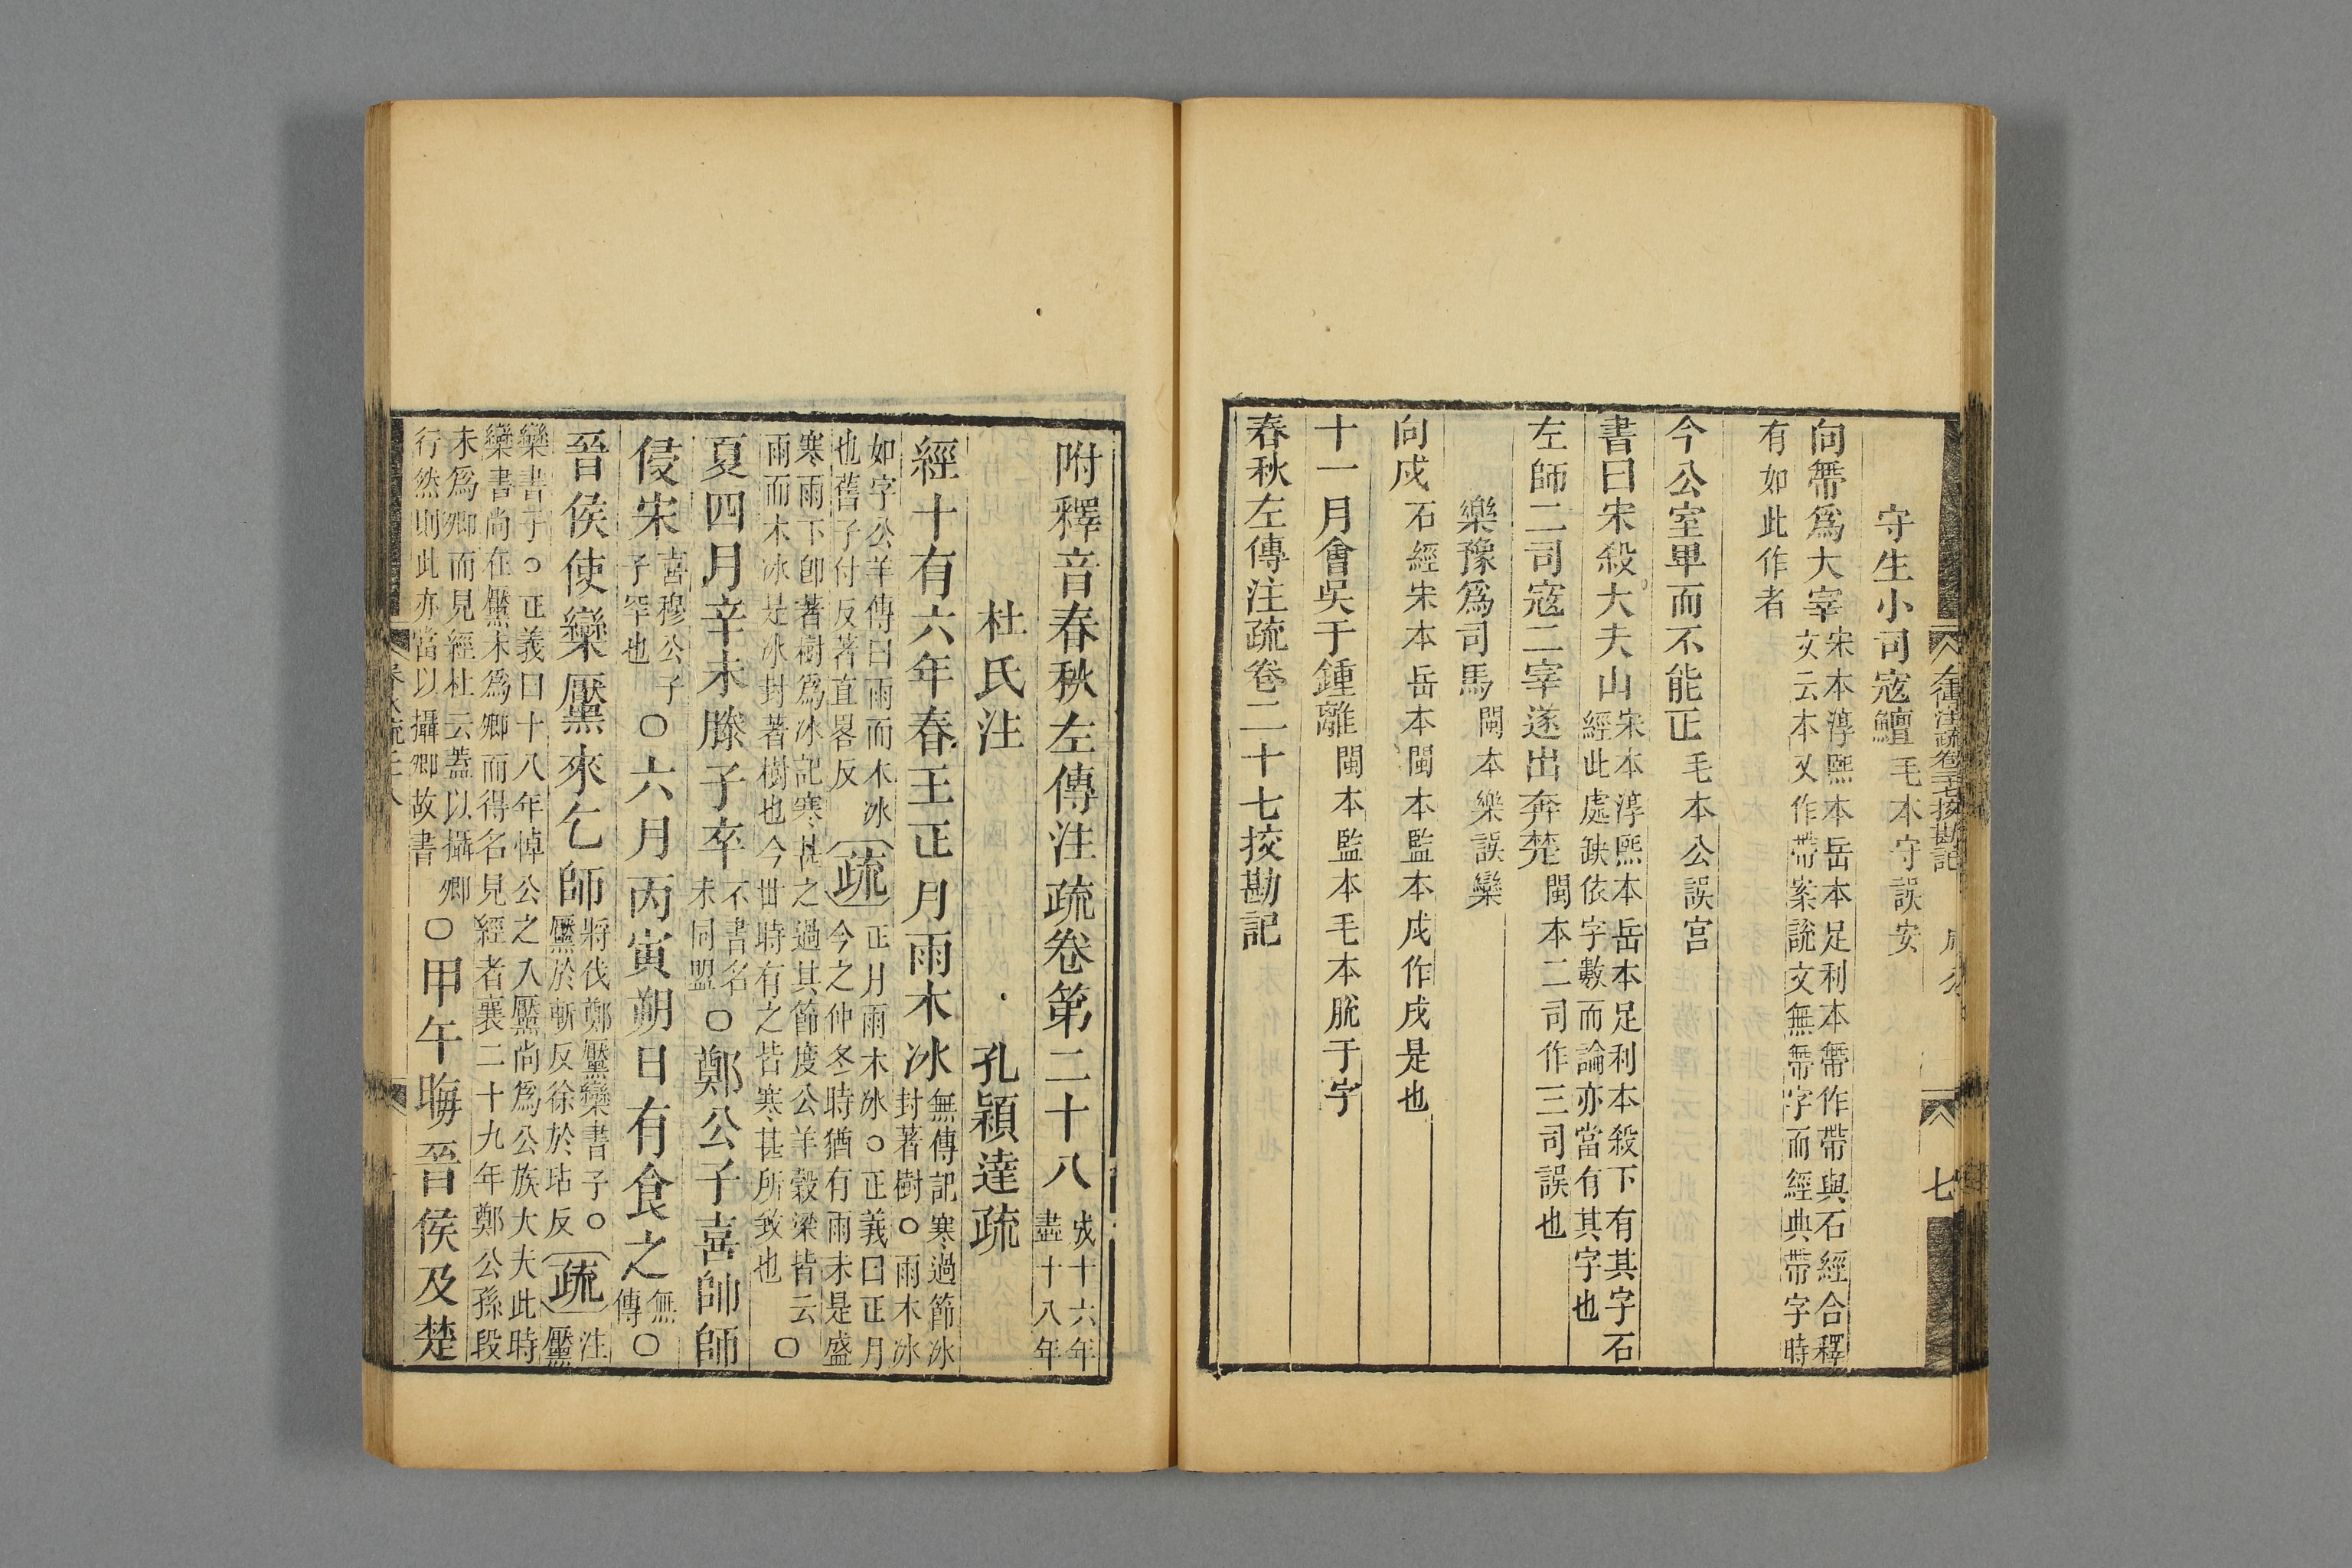 左傳注疏卷二十七挍勘記
七
守生小司寇鱣毛本守誤安
向帶爲大宰宋本淳熙本岳本足利本帶作帶與石經合釋
文云本又作帶案說文無帶字而經典帶字時
有如此作者
今公室卑而不能正毛本公誤宮
書曰宋殺大夫山宋本淳熙本岳本足利本殺下有其字石
經此處缺依字數而論亦當有其字也
左師二司寇二宰遂出奔楚閩本二司作三司誤也
樂豫爲司馬閩本樂誤欒
向戌石經宋本岳本閩本監本戌作戍是也
十一月會吳于鍾離閩本監本毛本脫于字
春秋左傳注疏卷二十七挍勘記
附釋音春秋左傳注疏卷第二十八成十六年
盡十八年
杜氏注 孔穎達疏
經十有六年春王正月雨木冰無傳記寒過節冰
封著樹○雨木冰
如字公羊傳曰雨而木冰
也舊于付反著直畧反疏正月雨木冰○正義曰正月
今之仲冬時猶有雨未是盛
寒雨下卽著樹爲冰記寒甚之過其節度公羊穀梁皆云
雨而木冰是冰封著樹也今世時有之皆寒甚所致也○
夏四月辛未滕子卒不書名
未同盟○鄭公子喜帥師
侵宋喜穆公子
子罕也○六月丙寅朔日有食之無
傳○
晉侯使欒黶來乞師將伐鄭黶欒書子○
黶於斬反徐於玷反疏注
黶
欒書子○正義曰十八年悼公之入黶尚爲公族大夫此時
欒書尚在黶未爲卿而得名見經者襄二十九年鄭公孫段
未爲卿而見經杜云蓋以攝卿
行然則此亦當以攝卿故書○甲午晦晉侯及楚